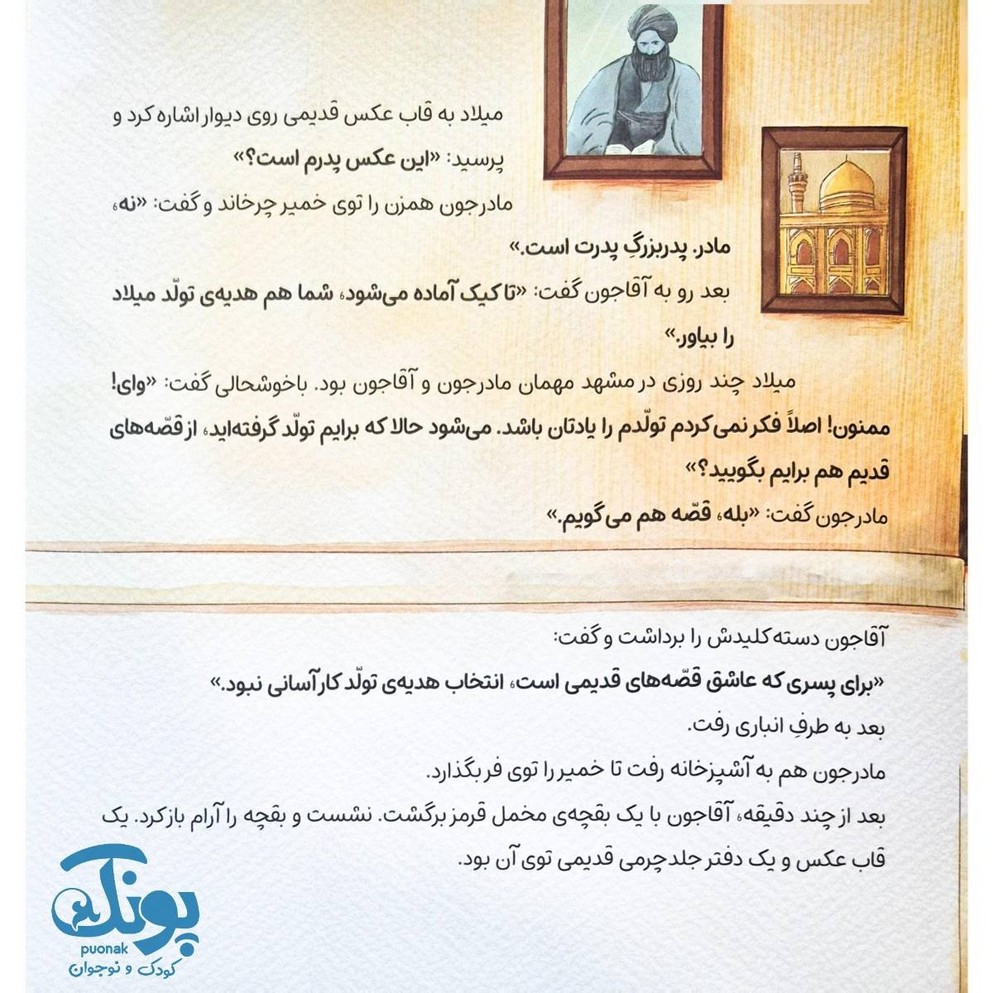 میلاد به قاب عکس قدیمی روی دیوار اشاره کرد و
پرسید: «این عکس پدرم است؟»
مادرجون همزن را توی خمیر چرخاند و گفت: «نه،
مادر. پدربزرگِ پدرت است.»
بعد رو به آقاجون گفت: «تا کیک آماده می‌شود، شما هم هدیه‌ی تولّد میلاد
را بیاور.»
میلاد چند روزی در مشهد مهمان مادرجون و آقاجون بود. باخوشحالی گفت: «وای!
ممنون! اصلاً فکر نمی‌کردم تولّدم را یادتان باشد. می‌شود حالا که برایم تولّد گرفته‌اید، از قصّه‌های
قدیم هم برایم بگویید؟»
مادرجون گفت: «بله، قصّه هم می‌گویم.»
آقاجون دسته کلیدش را برداشت و گفت:
«برای پسری که عاشق قصّه‌های قدیمی است، انتخاب هدیه‌ی تولّد کار آسانی نبود.»
بعد به طرفِ انباری رفت.
مادرجون هم به آشپزخانه رفت تا خمیر را توی فر بگذارد.
بعد از چند دقیقه، آقاجون با یک بقچه‌ی مخمل قرمز برگشت. نشست و بقچه را آرام باز کرد. یک
قاب عکس و یک دفتر جلد چرمی قدیمی توی آن بود.
پونک
puonak
کودک و نوجوان